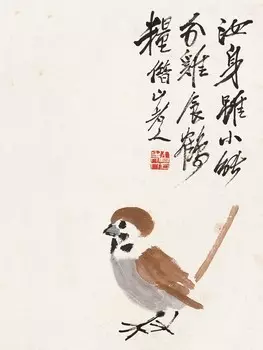 汝身雖小能
分雞鶴
糧借山老人